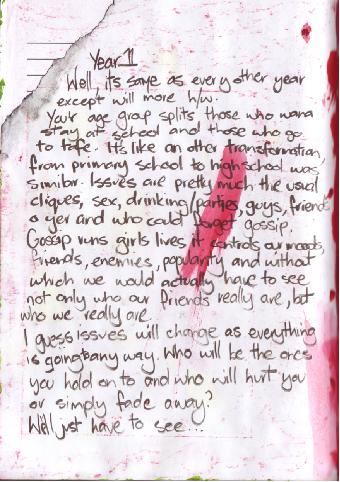 Year 11
Well, its same as every other year
except will more h/w.
Your age group splits those who wana
stay at school and those who go
to tafe. It's like an other transformation,
from primary school to high school was
similar. Issues are pretty much the usual
cliques, sex, drinking/parties, guys, friends
o yer and who could forget gossip.
Gossip runs girls lives, it controls our moods,
friends, enemies, popularity and without
which we would actually have to see
not only who our friends really are, but
who we really are.
I guess issues will change as everything
is going any way. Who will be the ones
you hold on to and who will hurt you
or simply fade away?
Will just have to see...